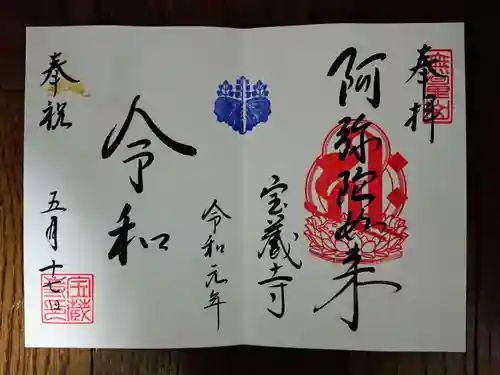 奉拝
阿弥陀如来
宝蔵寺
令和元年
令和
奉祝
五月十七日